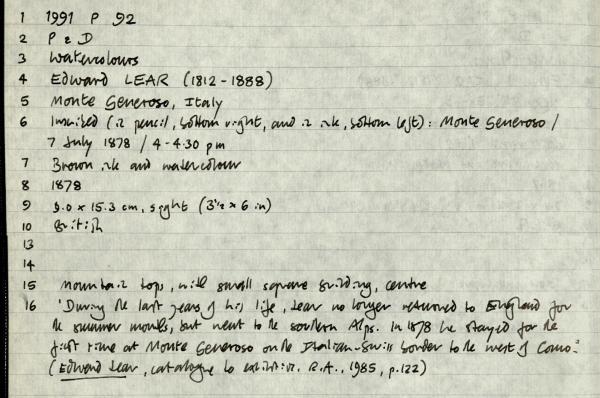 1 1991 P 92
2 P & D
3 Watercolours
4 Edward LEAR (1812-1888)
5 Monte Generoso, Italy
6 Inscribed (in pencil, bottom right, and in ink, bottom left): Monte Generoso /
7 July 1878 / 4-4.30 pm
7 Brown ink and watercolour
8 1878
9 9.0 x 15.3 cm, sight (3½ x 6 in)
10 British
13
14
15 Mountain tops, with small square building, centre
16 'During the last years of his life, Lear no longer returned to England for
the summer months, but went to the southern Alps. In 1878 he stayed for the
first time at Monte Generoso on the Italian-Swiss border to the west of Como.'
(Edward Lear, catalogue to exhibition. R.A., 1985, p.122)